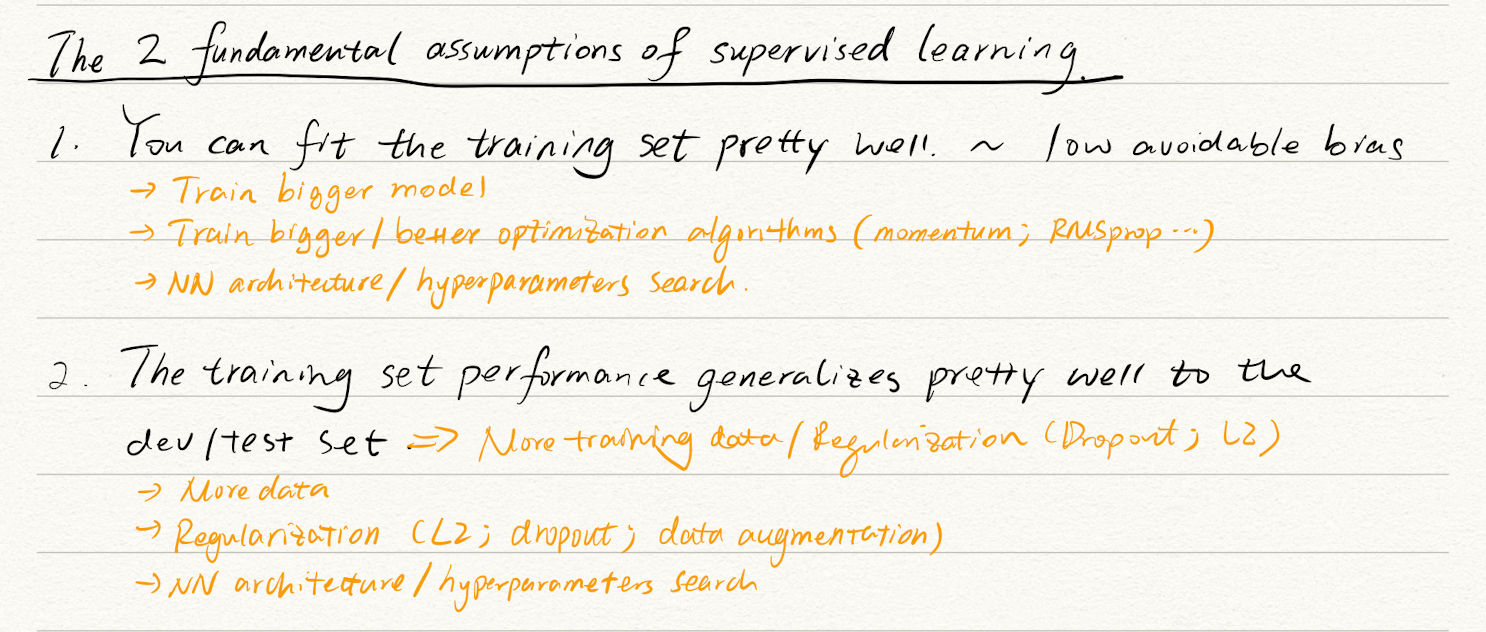 The 2 fundamental assumptions of supervised learning.
1. You can fit the training set pretty well. ~ low avoidable bias
→ Train bigger model
→ Train bigger/better optimization algorithms (momentum; RMSprop...)
→ NN architecture/hyperparameters search.
2. The training set performance generalizes pretty well to the
dev/test set => More training data/Regularization (Dropout; L2)
→ More data
→ Regularization (L2; dropout; data augmentation)
→ NN architecture/hyperparameters search